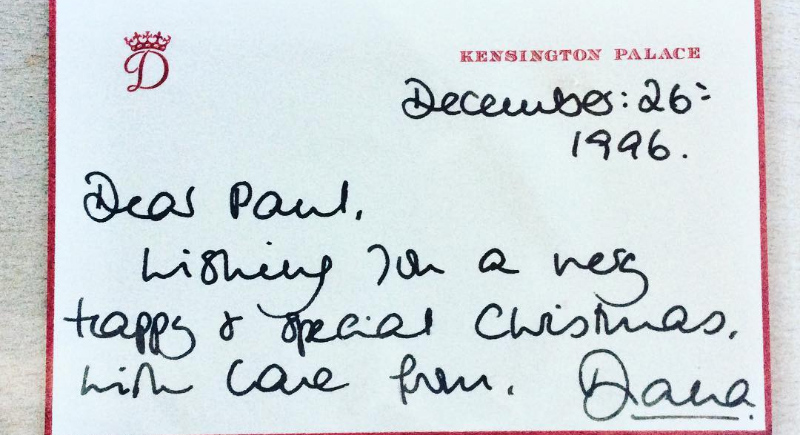 D
KENSINGTON PALACE
December: 26=
1996.
Dear Paul,
Wishing you a very
happy & special Christmas,
with love from, Diana.